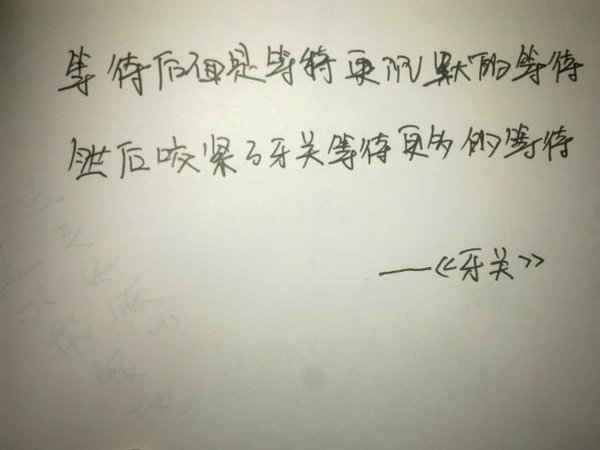 等待后但是等待更沉默的等待
然后咬紧了牙关等待更多的等待
——《牙关》